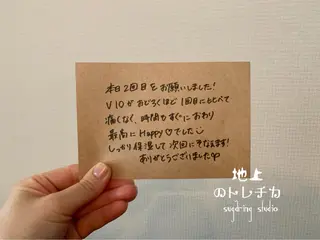 本日2回目をお願いしました!
VIOがおどろくほど1回目に比べて
痛くなく、時間もすぐにおわり
最高にHappy♡でした☺
しっかり保湿して次回にそなえます!
ありがとうございました♡
地上
のトレチカ
sugaring studio